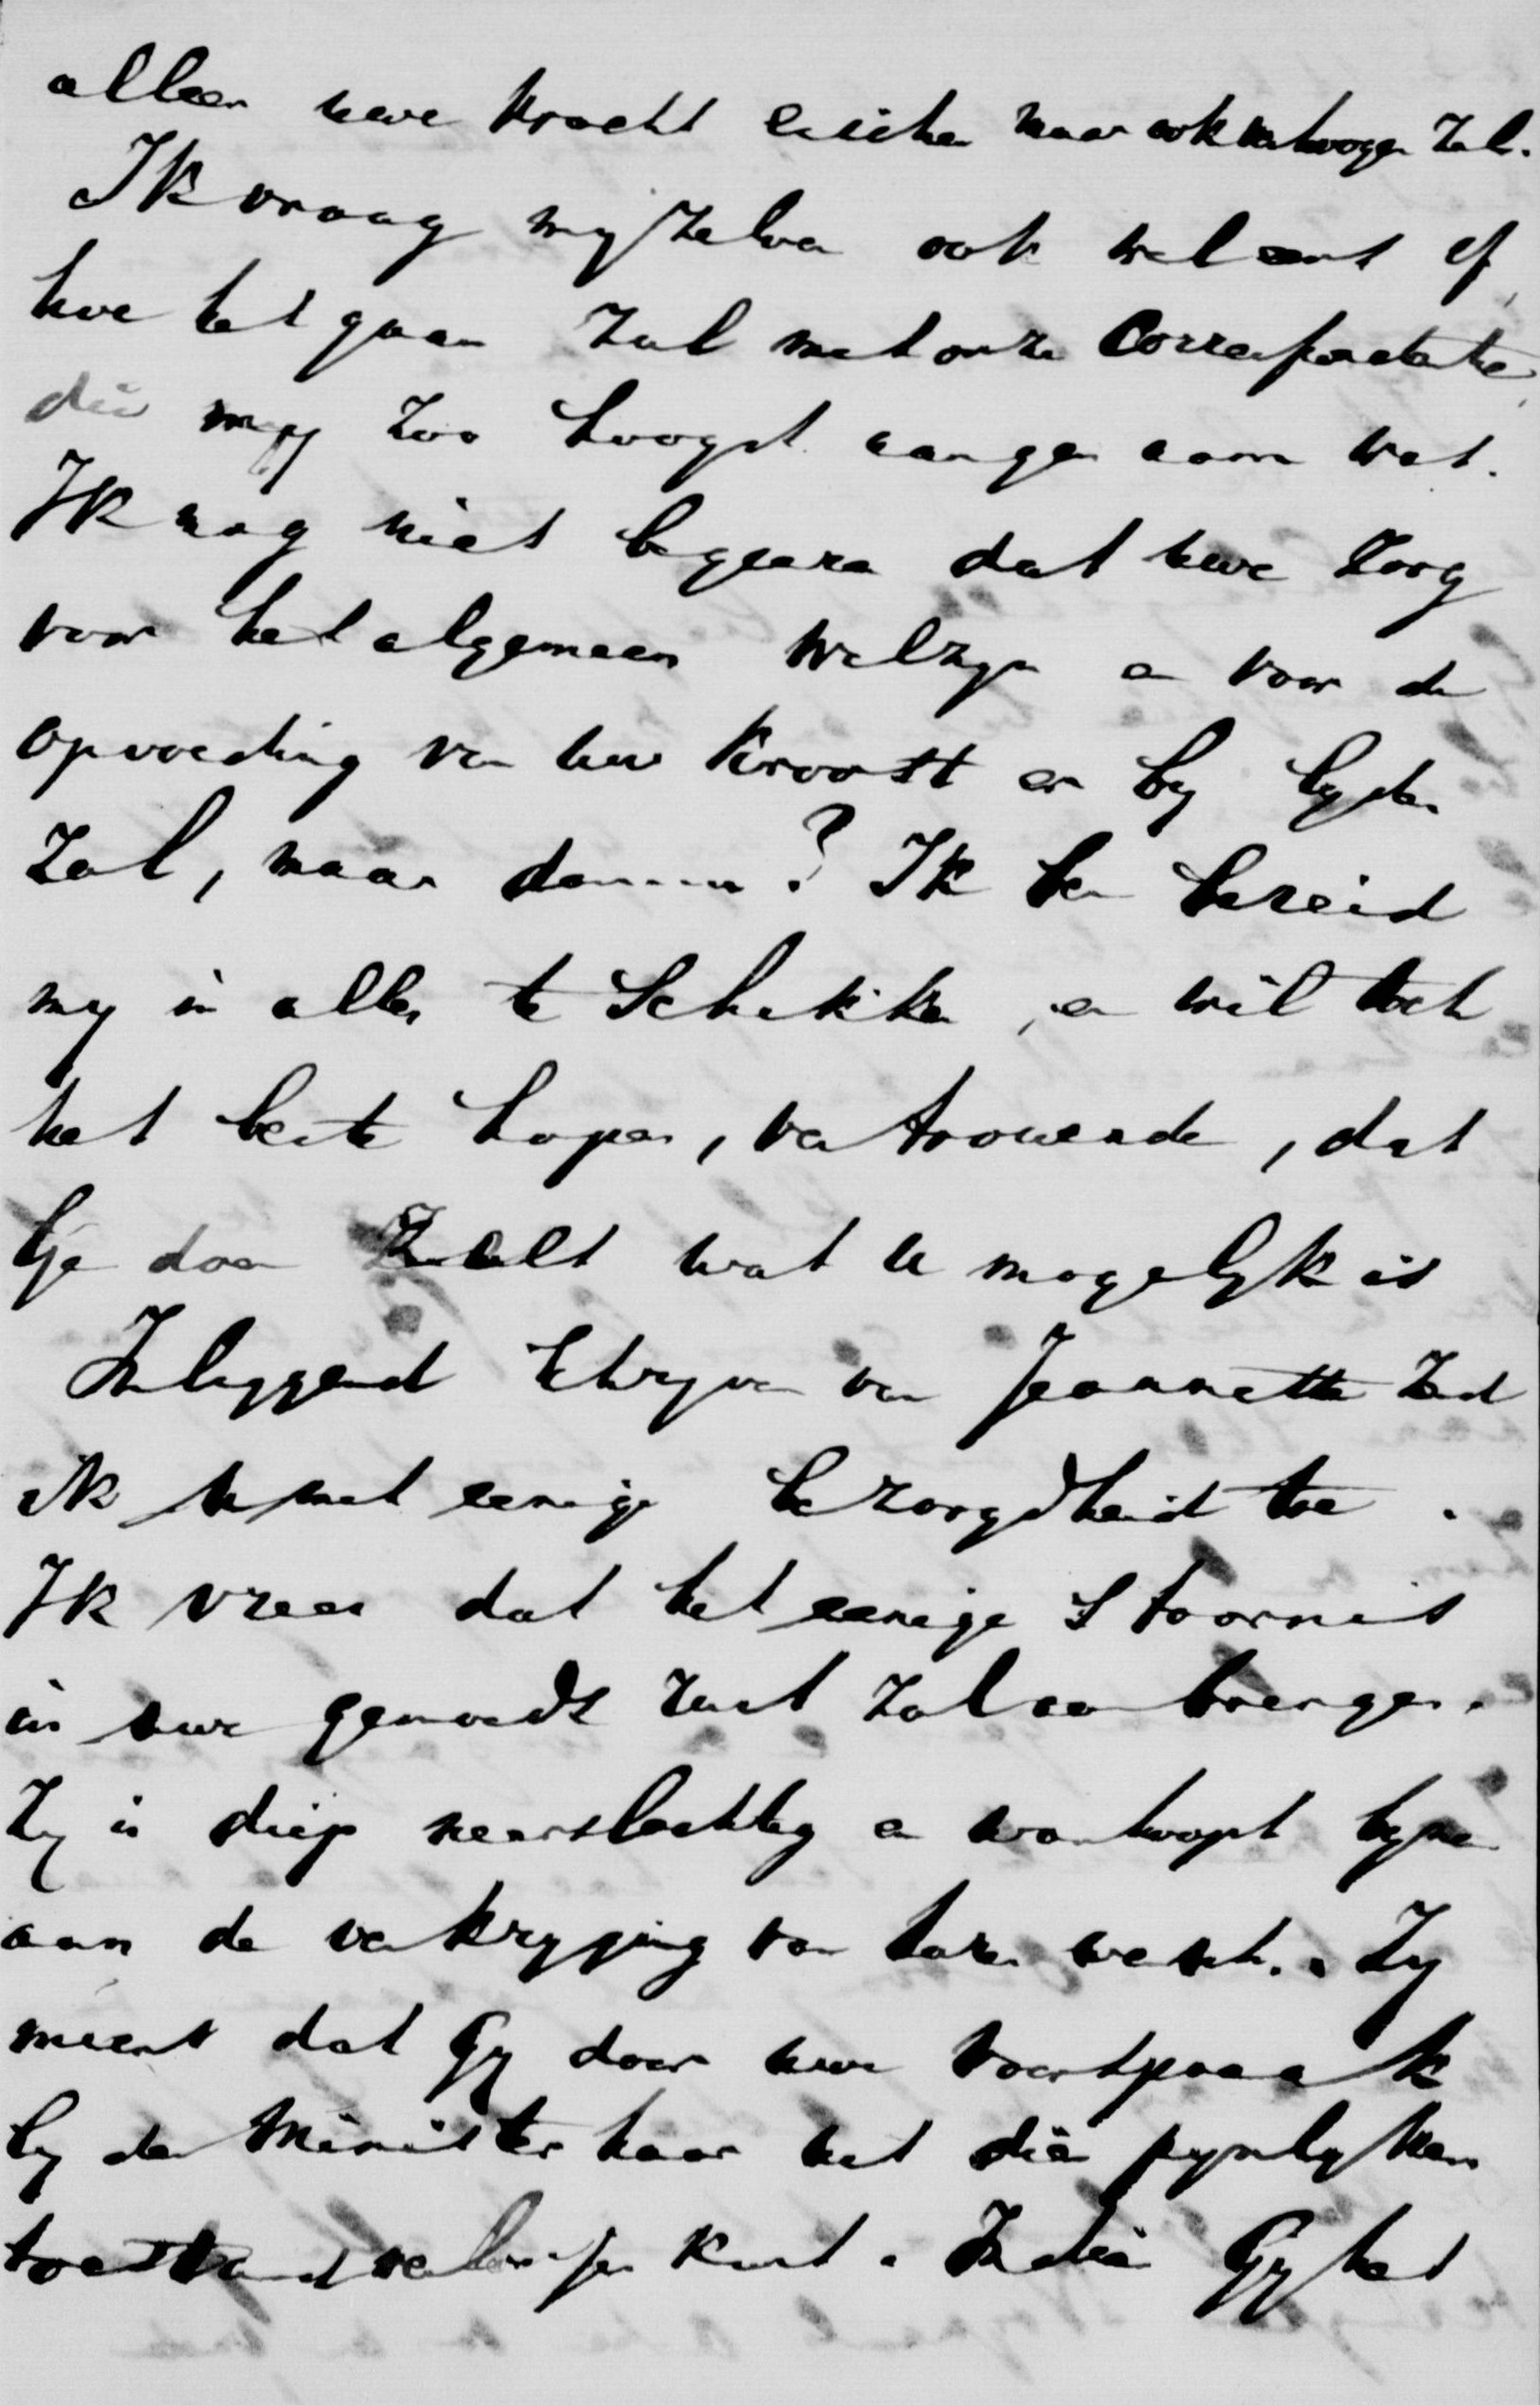 alleen uwe kracht eischen maar ook verhoogen zal.
Ik vraag myzelven ook wel eens of
hoe het gaan zal met onze Correspondentie,
die my zoo hoogst aangenaam was.
Ik mag niet begeeren dat uwe zorg
voor het algemeen welzyn en voor de
opvoeding van uw kroost er by lyden
zal, maar daarom? Ik ben bereid
my in alles te schikken, en wil toch
het beste hopen, vertrouwende, dat
Ge doen zult wat u mogelyk is
Inliggend schryven van Jeannette zend
ik u met eenige bezorgdheid toe.
Ik vrees dat het eenige stoornis
in uwe gemoeds rust zal aanbrengen.
Zy is diep neerslachtig en wanhoopt byna
aan de verkryging van haren wensch. Zy
meent dat Gy door uwe voorspraak
by den Minister haar uit dien pynlyken
toestand verlossen kunt. Indien Gy het